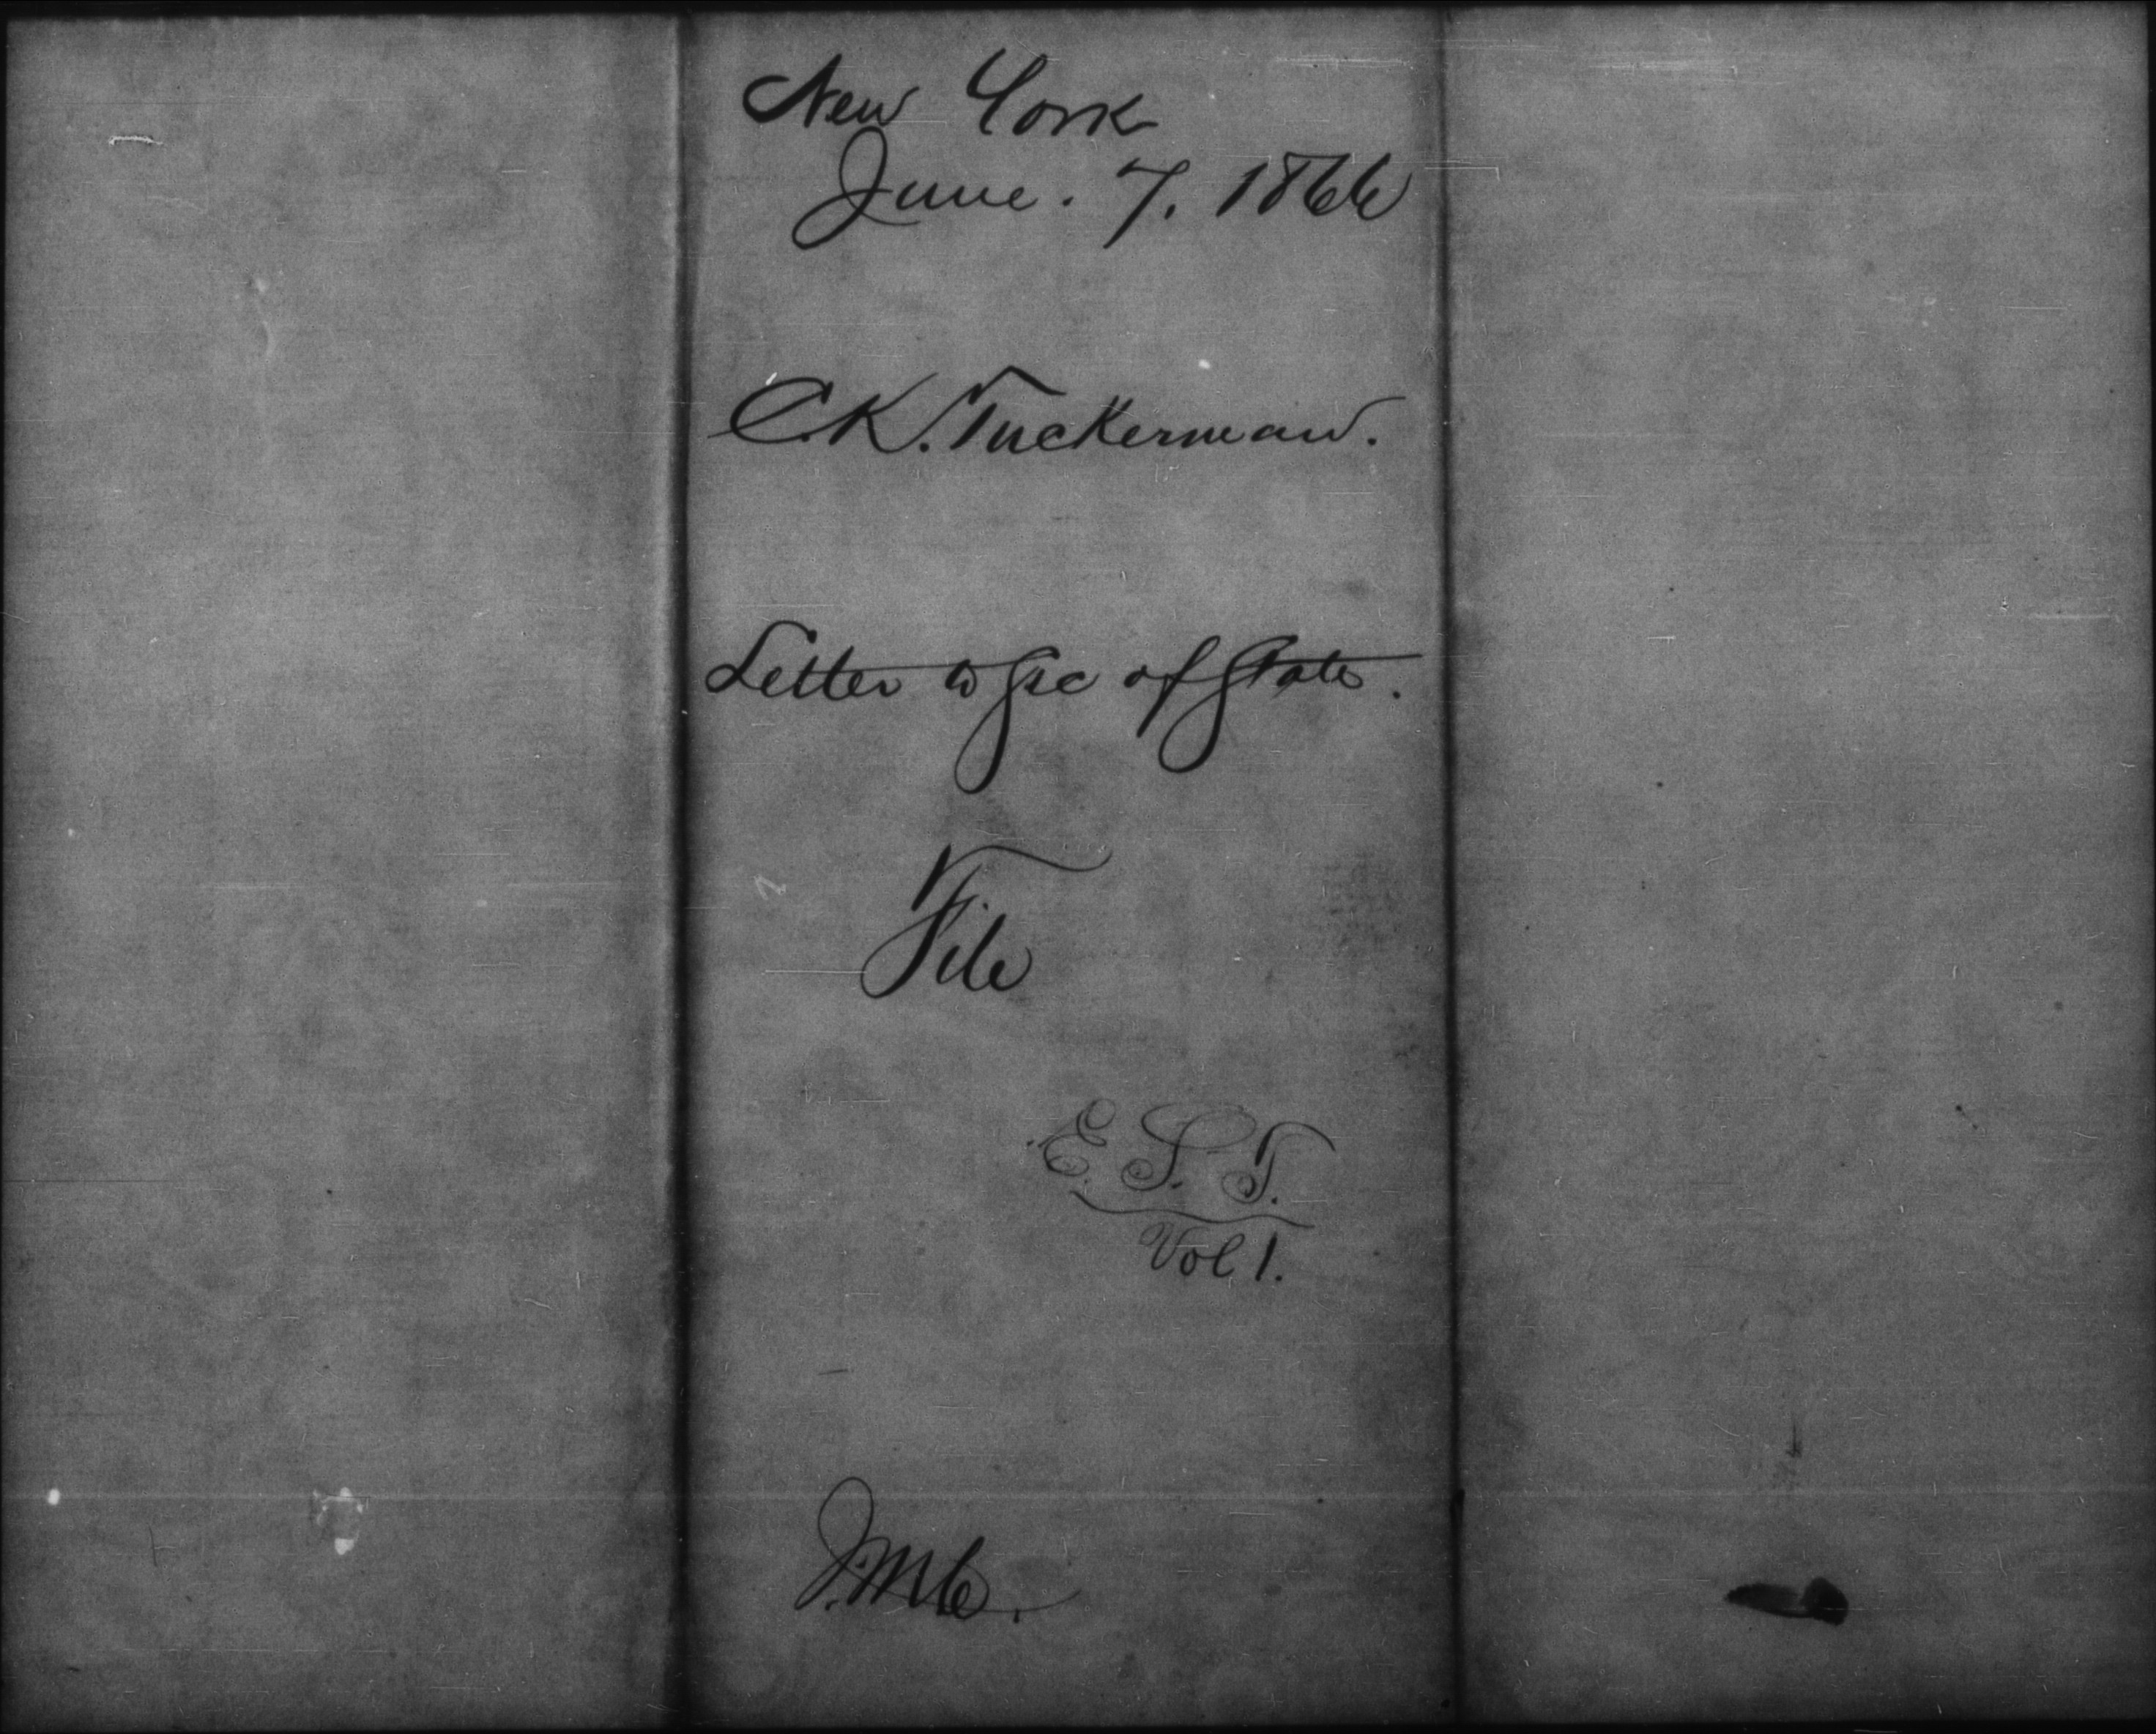 New York
June. 7. 1866
C. K. Tuckerman.
Letter to Sec of State.
File
E. S. T.
Vol 1.